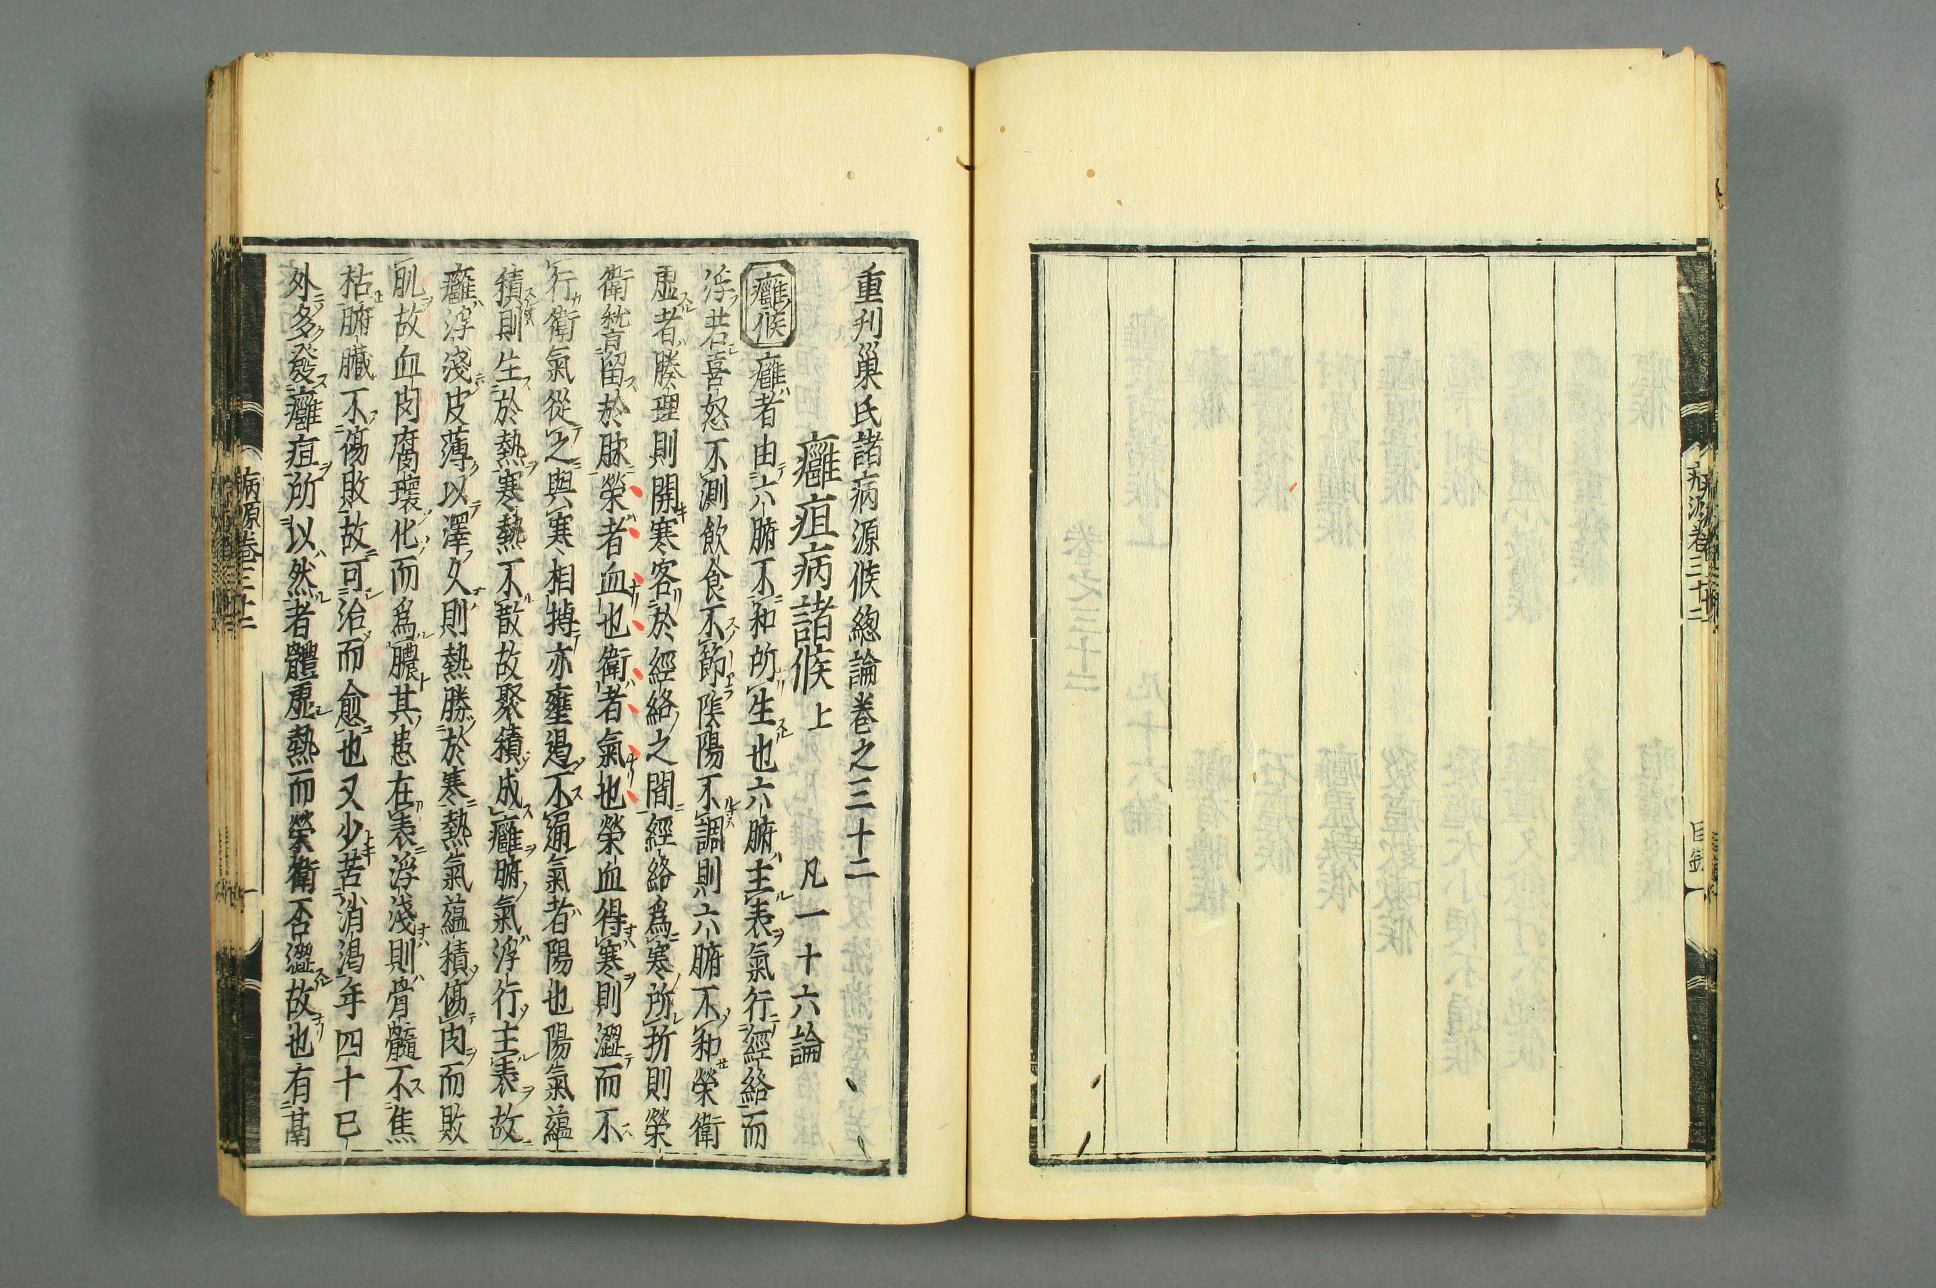 病源卷三十二
目錄
重刋巢氏諸病源候總論卷之三十二
癰疽病諸候上　凡一十六論
癰候　癰者由六腑不和所生也六腑主表氣行經絡而
浮若喜怒不測飲食不節陰陽不調則六腑不和榮衛
虛者腠理則開寒客於經絡之間經絡爲寒所折則榮
衛稽留於脉榮者血也衛者氣也榮血得寒則澀而不
行衛氣從之與寒相搏亦壅遏不通氣者陽也陽氣蘊
積則生於熱寒熱不散故聚積成癰腑氣浮行主表故
癰浮淺皮薄以澤久則熱勝於寒熱氣蘊積傷肉而敗
肌故血肉腐壞化而爲膿其患在表浮淺則骨髓不焦
枯腑臟不傷敗故可治而愈也又少苦消渴年四十已
外多發癰疽所以然者體虛熱而榮衛否澀故也有鬲
病源卷三十二
一